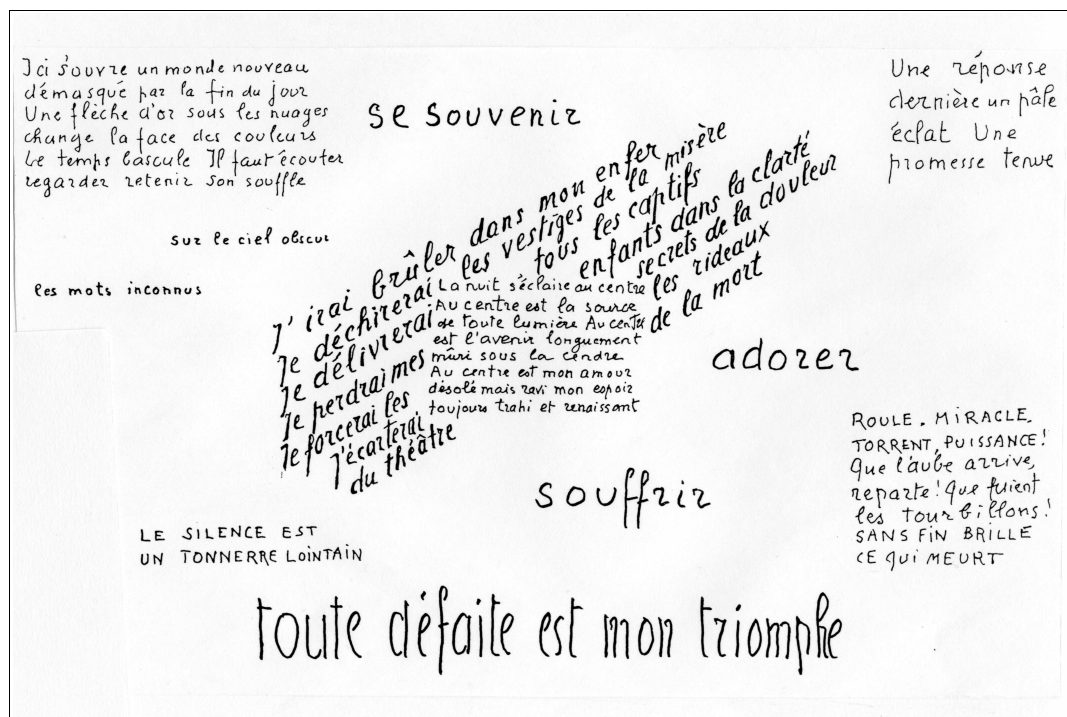 Ici s'ouvre un monde nouveau
démasqué par la fin du jour
Une flèche d'or sous les nuages
change la face des couleurs
Le temps bascule Il faut écouter
regarder retenir son souffle
se souvenir
Une réponse
dernière un pâle
éclat Une
promesse tenue
sur le ciel obscur
les mots inconnus
J'irai brûler dans mon enfer
Je déchirerai les vestiges de la misère
Je délivrerai tous les captifs
Je perdrai mes enfants dans la clarté
Je forcerai les secrets de la douleur
J'écarterai les rideaux
du théâtre de la mort
La nuit s'éclaire au centre
Au centre est la source
de toute lumière Au centre
est l'avenir longuement
mûri sous la cendre
Au centre est mon amour
désolé mais ravi mon espoir
toujours trahi et renaissant
adorer
souffrir
ROULE. MIRACLE.
TORRENT, PUISSANCE!
Que l'aube arrive,
reparte! Que fuient
les tourbillons!
SANS FIN BRILLE
CE QUI MEURT
LE SILENCE EST
UN TONNERRE LOINTAIN
toute défaite est mon triomphe